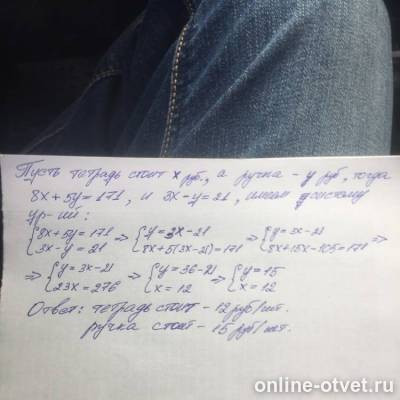 Пусть тетрадь стоит x руб., а ручка - y руб, тогда
8x + 5y = 171, и 3x - y = 21, имеем систему
ур-ий:
{8x + 5y = 171 {y = 3x - 21 {y = 3x - 21
{3x - y = 21 => {8x + 5(3x - 21) = 171 => {8x + 15x - 105 = 171 =>
=> {y = 3x - 21 => {y = 36 - 21 => {y = 15
{23x = 276 {x = 12 {x = 12
Ответ: тетрадь стоит - 12 руб/шт.
ручка стоит - 15 руб/шт.
online-otvet.ru